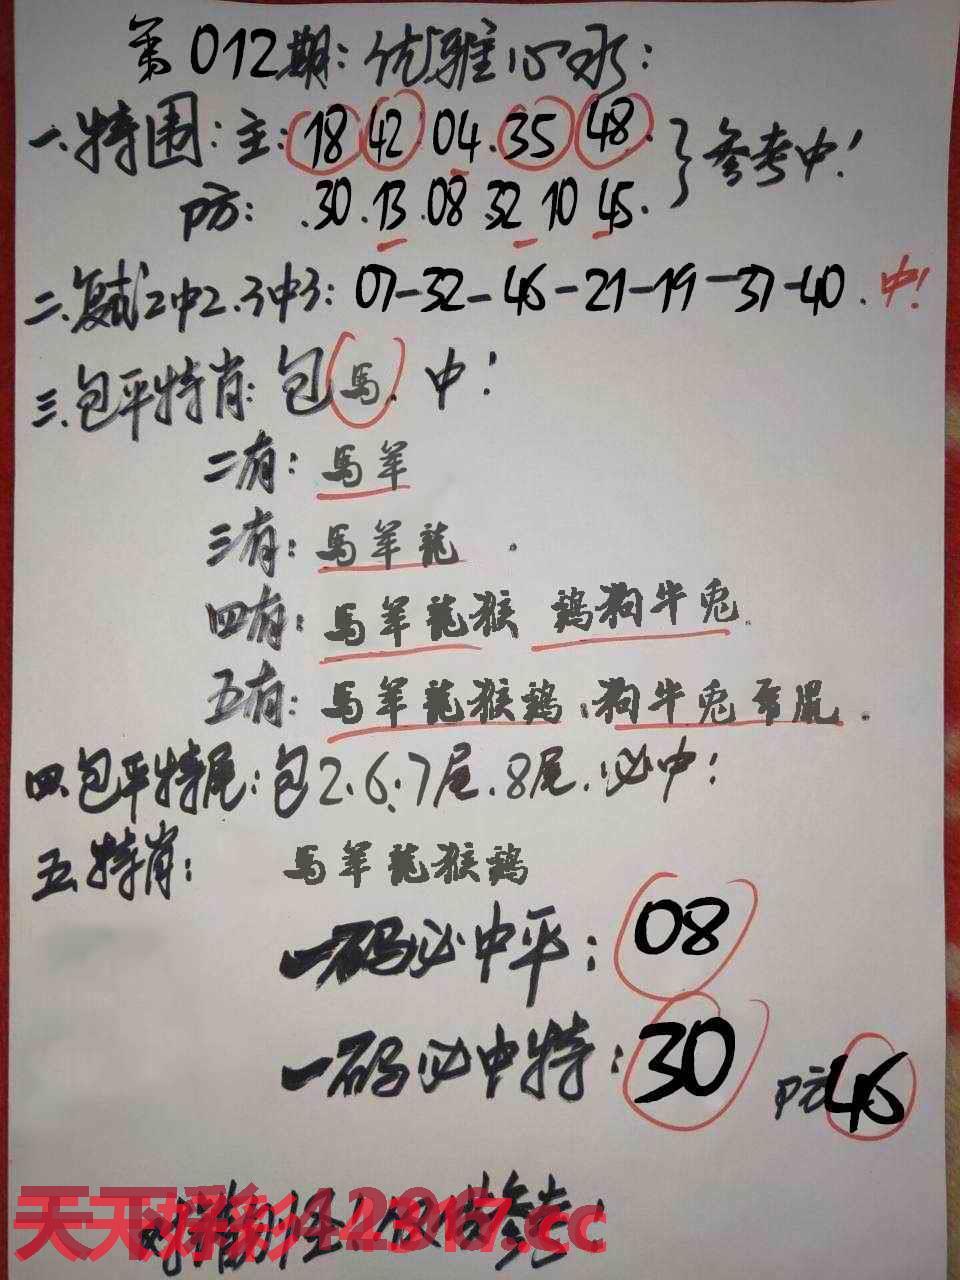 第012期：优雅心水：
一.特围：主：18 42 04.35 48.
防：.30.13.08 32 10 45.
参考中！
二.复试2中2.3中3：07-32-46-21-19-37-40.中！
三.包平特肖：包馬.中！
二有：馬羊
三有：馬羊龍.
四有：馬羊龍猴 鷄狗牛兎.
五有：馬羊龍猴鷄.狗牛兎 鼠.
四.包平特尾：包2.6.7尾.8尾.必中！
五.特肖：馬羊龍猴鷄
一码必中平：08
一码必中特：30 防46
天下彩 .cc